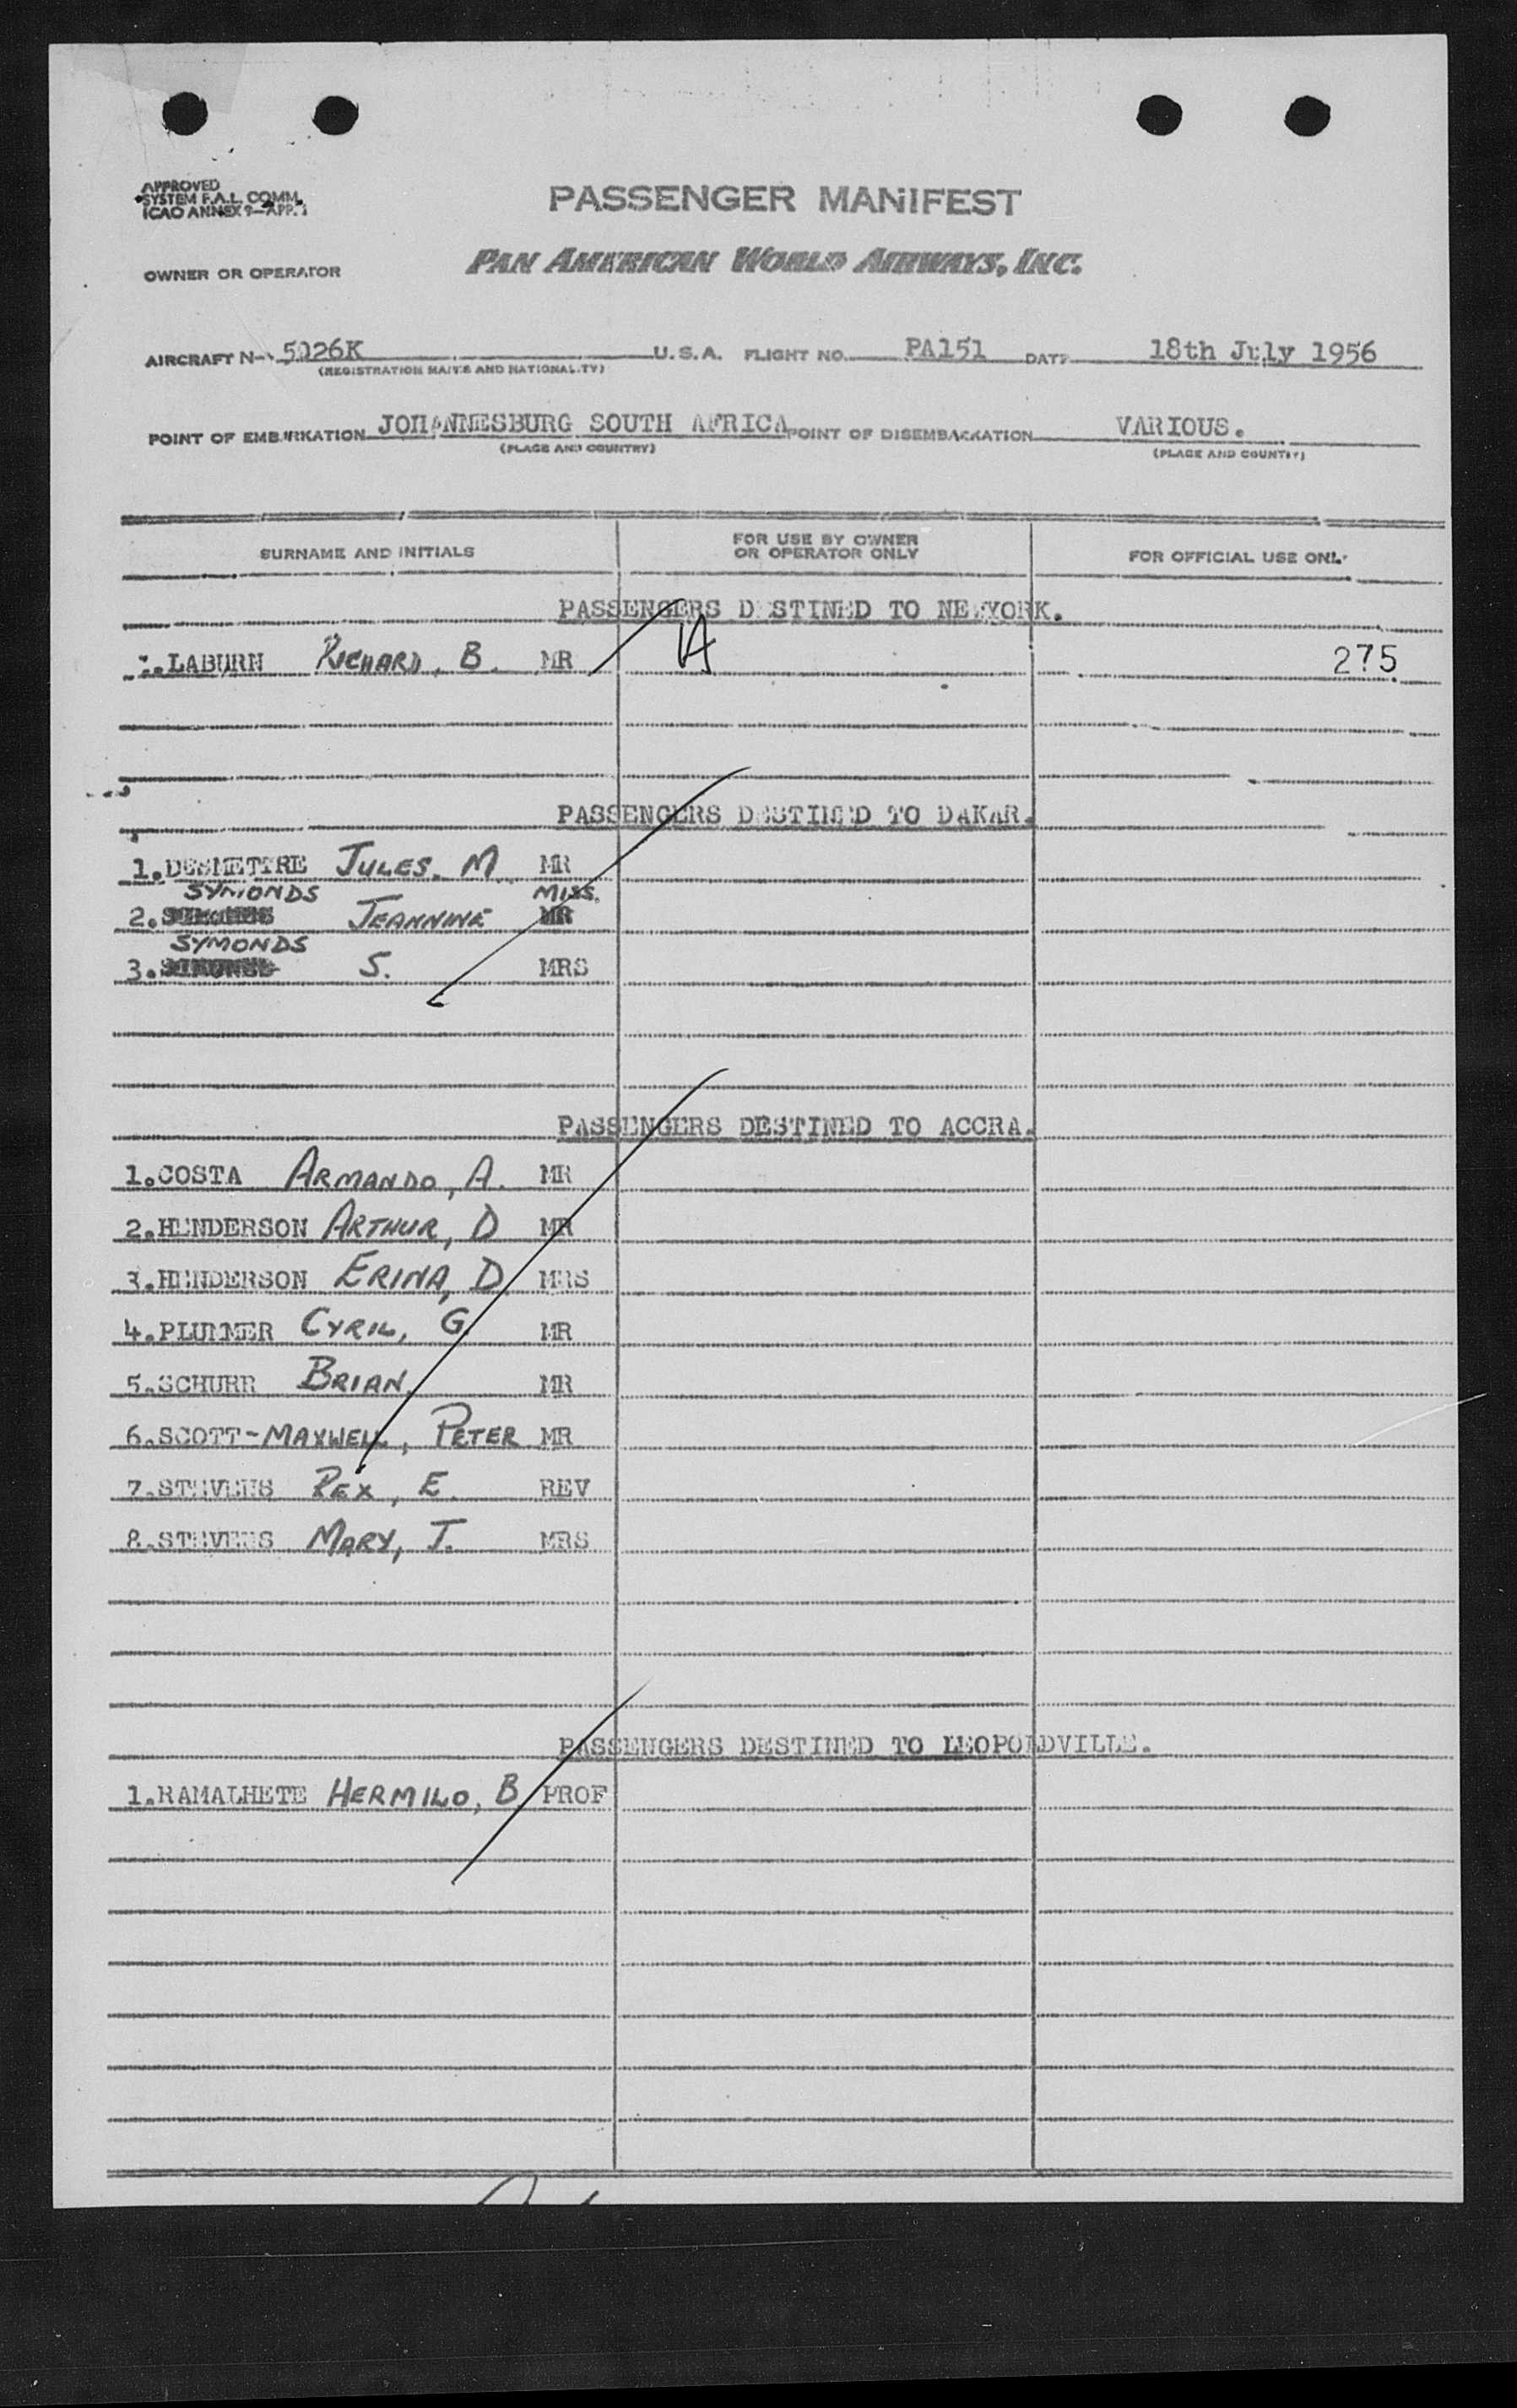 APPROVED
SYSTEM F.A.L. COMM.
ICAO ANNEX 9-APP. 1
PASSENGER MANIFEST
OWNER OR OPERATOR PAN AMERICAN WORLD AIRWAYS, INC.
AIRCRAFT N- 5026K U.S.A. FLIGHT NO. PA151 DATE 18th July 1956
(REGISTRATION MARKS AND NATIONALITY)
POINT OF EMBARKATION JOHANNESBURG SOUTH AFRICA POINT OF DISEMBARKATION VARIOUS.
(PLACE AND COUNTRY) (PLACE AND COUNTRY)
SURNAME AND INITIALS FOR USE BY OWNER OR OPERATOR ONLY FOR OFFICIAL USE ONLY
PASSENGERS DESTINED TO NEWYORK.
LABURN RICHARD, B. MR A 275
PASSENGERS DESTINED TO DAKAR.
1.DESMETTRE JULES. M. MR
SYMONDS MISS.
2. JEANNINE MR
SYMONDS
3. S. MRS
PASSENGERS DESTINED TO ACCRA.
1.COSTA ARMANDO, A. MR
2.HENDERSON ARTHUR, D MR
3.HENDERSON ERINA, D MRS
4.PLUMMER CYRIL, G. MR
5.SCHURR BRIAN, MR
6.SCOTT-MAXWELL, PETER MR
7.STEVENS REX, E. REV
8.STEVENS MARY, J. MRS
PASSENGERS DESTINED TO LEOPOLDVILLE.
1.RAMALHETE HERMILO, B PROF